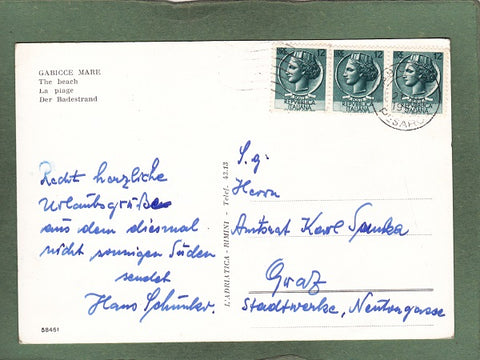 GABICCE MARE
The beach
La plage
Der Badestrand
Recht herzliche
Urlaubsgrüße
aus dem diesmal
nicht sonnigen Süden
sendet
Hans
58461
L'ADRIATICA - RIMINI - Telef. 43.13
12
12
12
REPUBBLICA
ITALIANA
REPUBBLICA
ITALIANA
PESARO
S.g.
Herrn
Amtsrat Karl
Graz
Stadtwerke, Neutorgasse